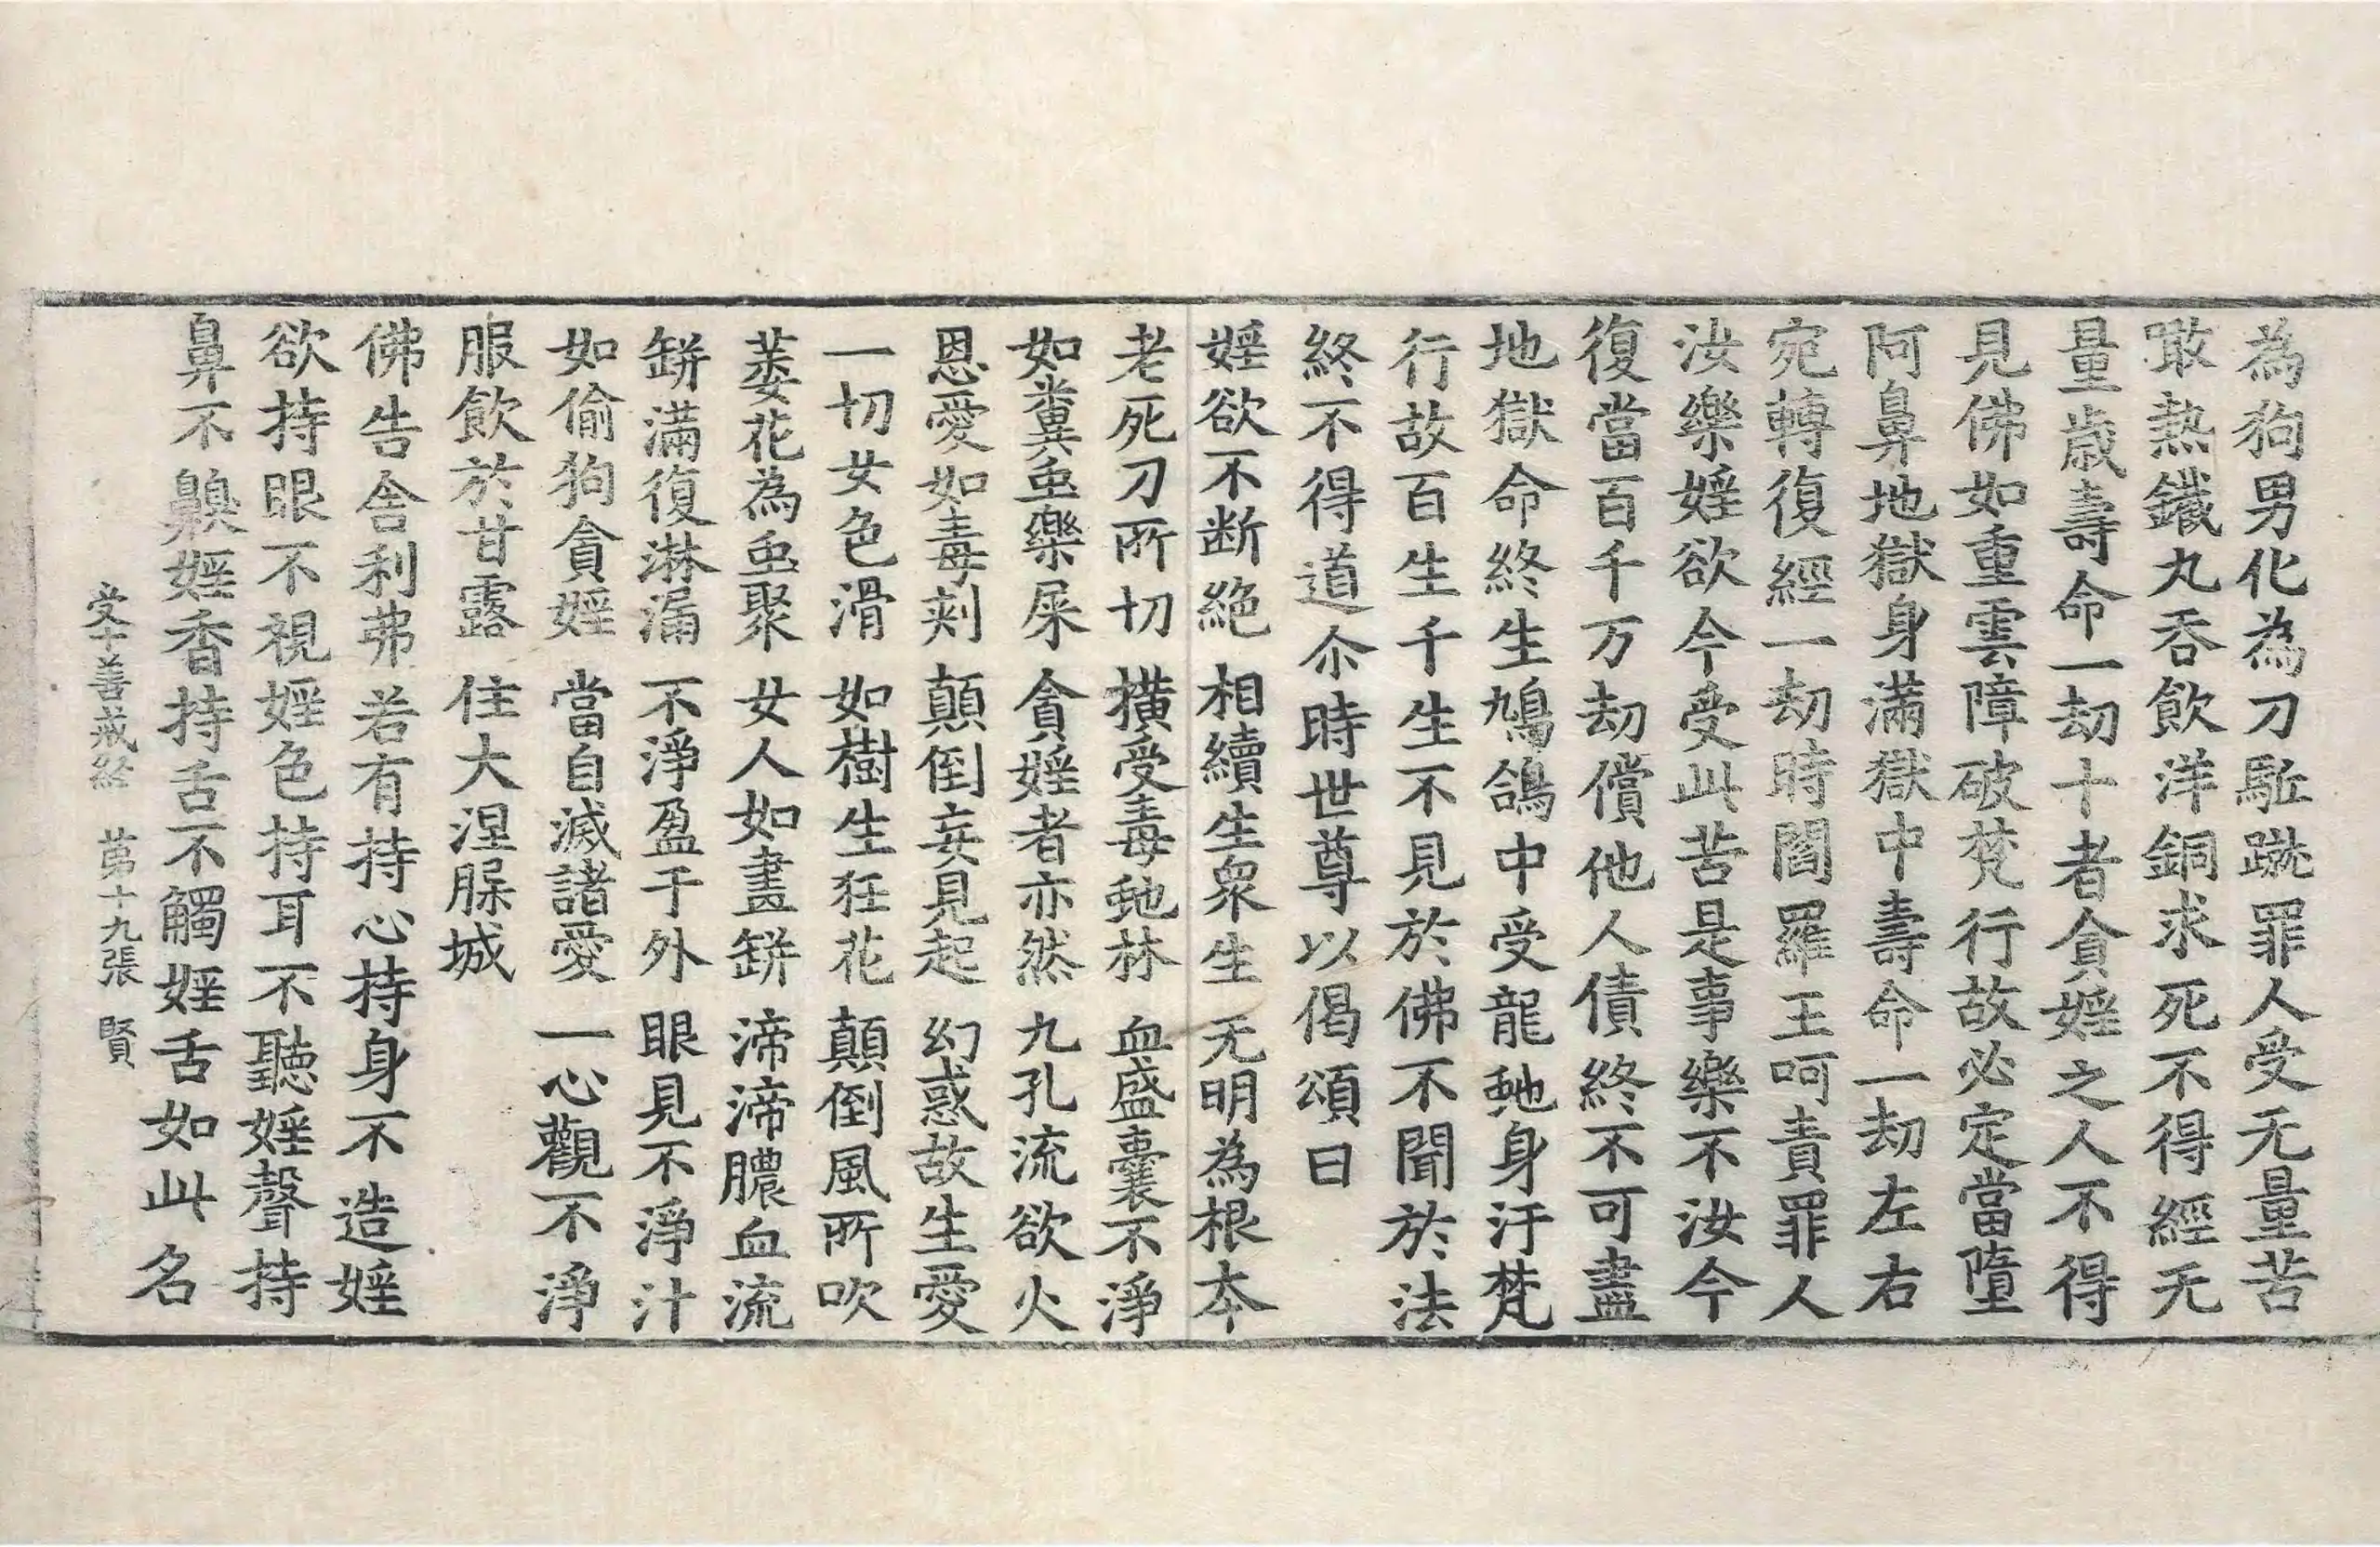 為狗男化為刀駈蹴罪人受无量苦
噉熱鐵丸吞飲洋銅求死不得經无
量歲壽命一劫十者貪婬之人不得
見佛如重雲障破梵行故必定當墮
阿鼻地獄身滿獄中壽命一劫左右
宛轉復經一劫時閻羅王呵責罪人
汝樂婬欲今受此苦是事樂不汝今
復當百千万劫償他人債終不可盡
地獄命終生鳩鴿中受龍虵身汙梵
行故百生千生不見於佛不聞於法
終不得道尒時世尊以偈頌曰
婬欲不断絶 相續生衆生 无明為根本
老死刀所切 橫受毒虵林 血盛囊不淨
如糞虫樂屎 貪婬者亦然 九孔流欲火
恩愛如毒刺 顛倒妄見起 幻惑故生愛
一切女色滑 如樹生狂花 顛倒風所吹
萎花為虫聚 女人如畫缾 渧渧膿血流
缾滿復淋漏 不淨盈于外 眼見不淨汁
如偷狗貪婬 當自滅諸愛 一心觀不淨
服飲於甘露 住大涅𦙾城
佛告舎利弗若有持心持身不造婬
欲持眼不視婬色持耳不聽婬聲持
鼻不齅婬香持舌不觸婬舌如此名
受十善戒経 苐十九張 賢